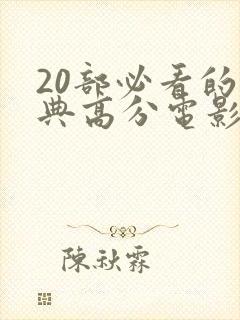 20部必看的
典高分電影
陳秋霖